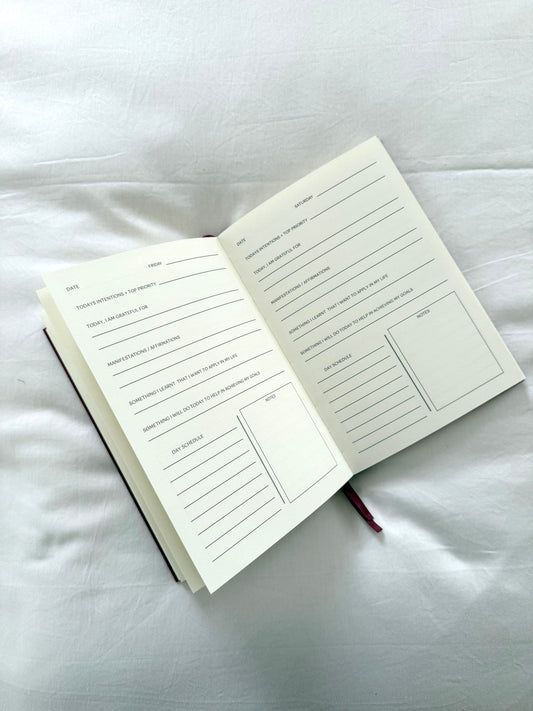 DATE FRIDAY
TODAYS INTENTIONS + TOP PRIORITY
TODAY, I AM GRATEFUL FOR
MANIFESTATIONS / AFFIRMATIONS
SOMETHING I LEARNT THAT I WANT TO APPLY IN MY LIFE
SOMETHING I WILL DO TODAY TO HELP IN ACHIEVING MY GOALS
DAY SCHEDULE
NOTES
DATE SATURDAY
TODAYS INTENTIONS + TOP PRIORITY
TODAY, I AM GRATEFUL FOR
MANIFESTATIONS / AFFIRMATIONS
SOMETHING I LEARNT THAT I WANT TO APPLY IN MY LIFE
SOMETHING I WILL DO TODAY TO HELP IN ACHIEVING MY GOALS
DAY SCHEDULE
NOTES